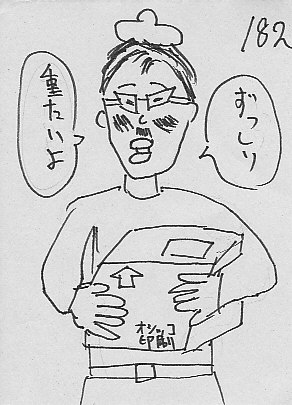 182
ずっしり
重たいよ
オシッコ
印刷